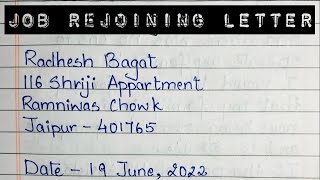 JOB REJOINING LETTER
Radhesh Bagat
116 Shriji Appartment
Ramniwas Chowk
Jaipur - 401765
Date - 19 June, 2022